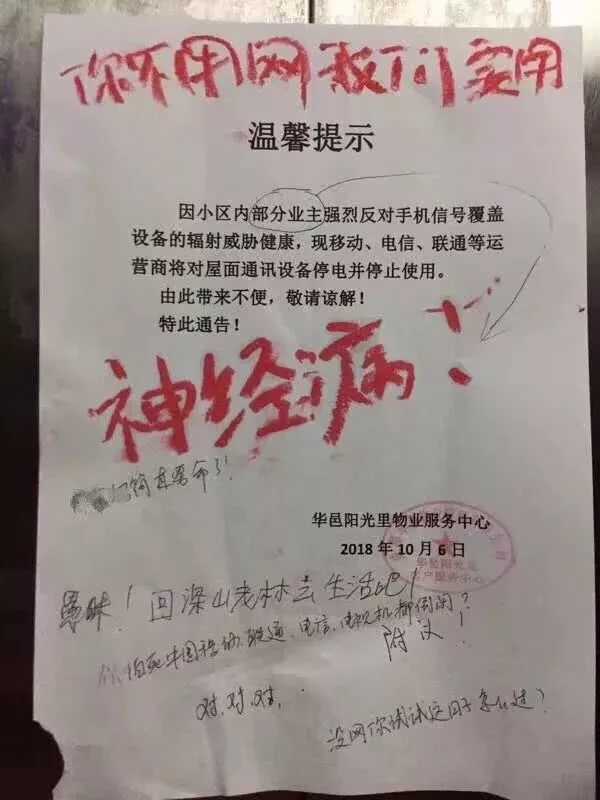 你不用网我们要用
温馨提示
因小区内部分业主强烈反对手机信号覆盖
设备的辐射威胁健康，现移动、电信、联通等运
营商将对屋面通讯设备停电并停止使用。
由此带来不便，敬请谅解！
特此通告！
神经病！
们简直要命了！
华邑阳光里物业服务中心
2018年10月6日
华邑阳光里
客户服务中心
愚昧！回深山老林去生活吧！
你怕死中国移动、联通、电信、电视机都倒闭？
附议！
对、对、对、
没网你试试这日子怎么过？